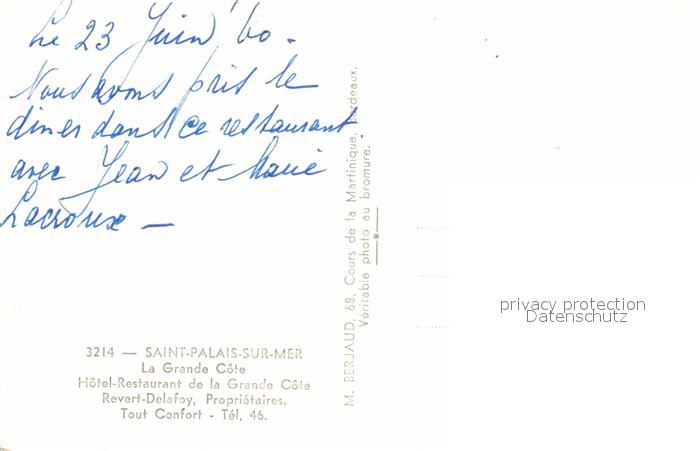 Le 23 Juin '60 -
Nous avons pris le
diner dans ce restaurant
avec Jean et Marie
Lacroux —
3214 — SAINT-PALAIS-SUR-MER
La Grande Côte
Hôtel-Restaurant de la Grande Côte
Revert-Delafoy, Propriétaires.
Tout Confort - Tél. 46.
M. BERJAUD, 68, Cours de la Martinique, Bordeaux.
Véritable photo au bromure.
privacy protection
Datenschutz